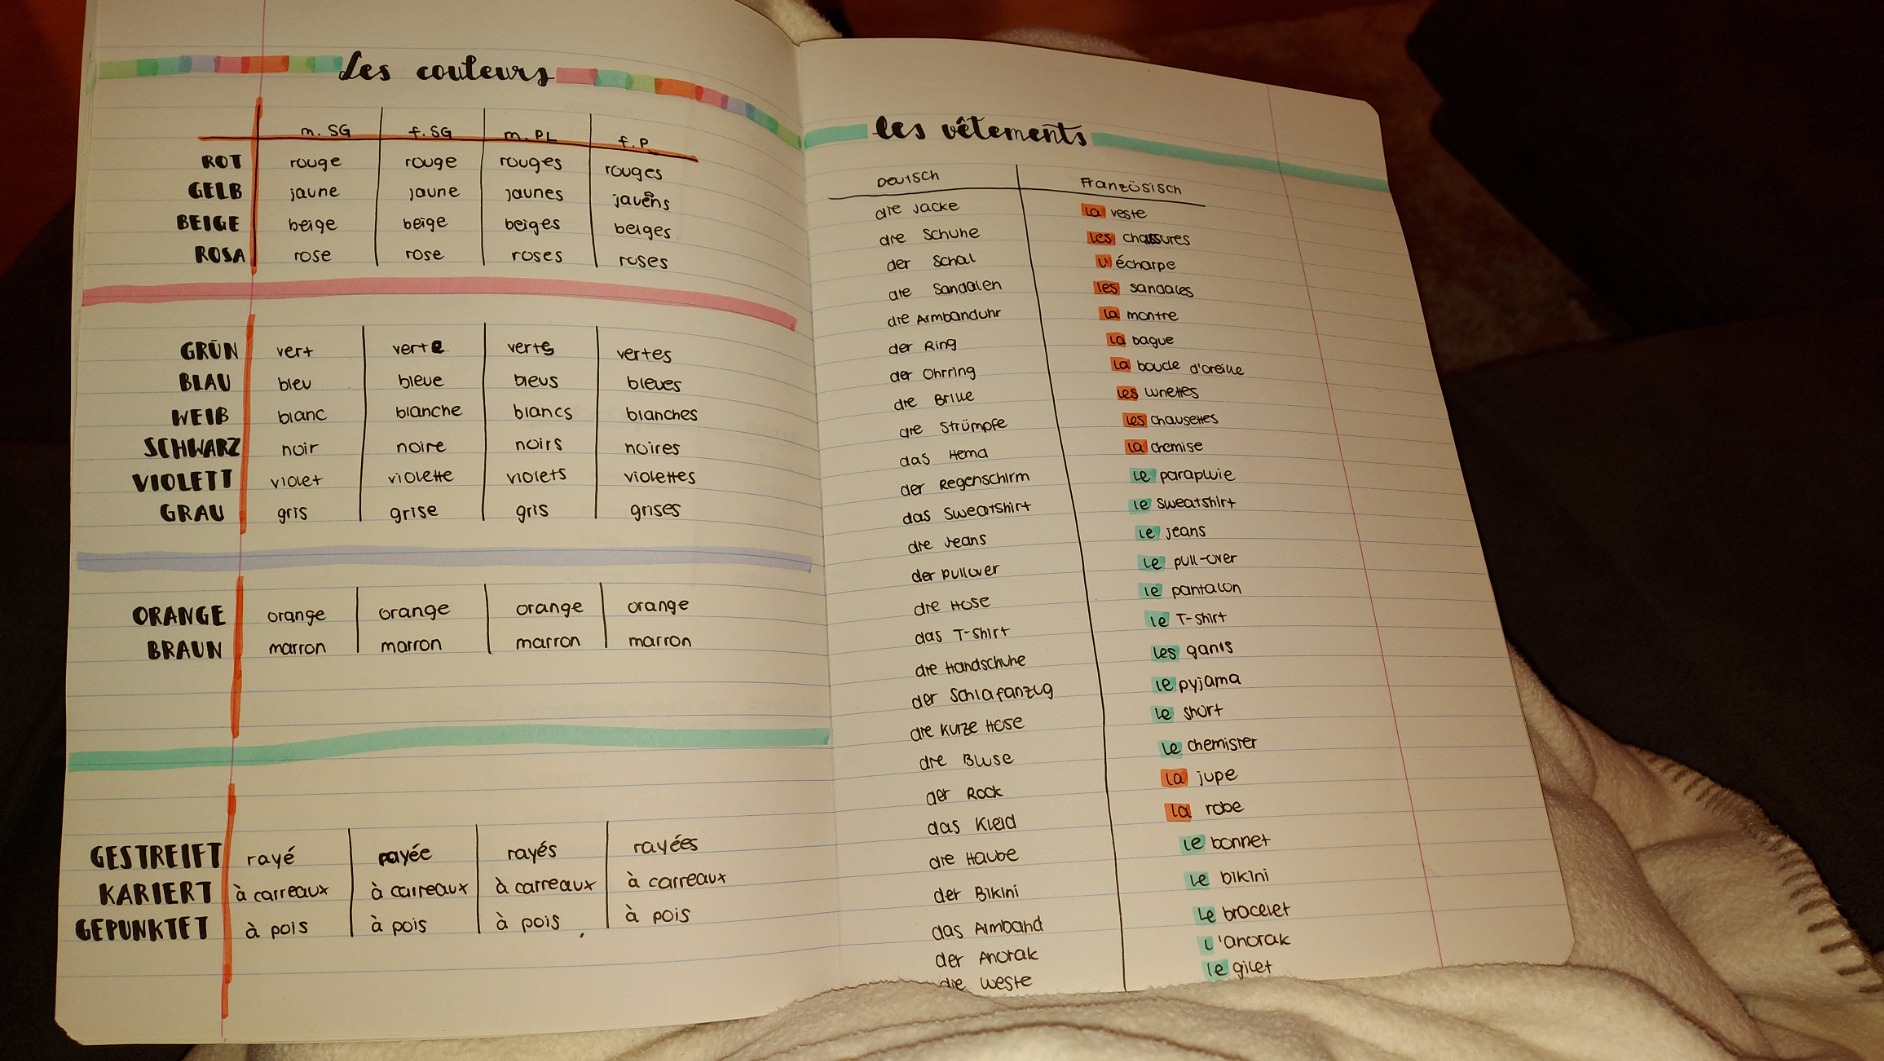 Les couleurs
m. SG f. SG m. PL f. P
ROT rouge rouge rouges rouges
GELB jaune jaune jaunes
BEIGE beige beige beiges beiges
ROSA rose rose roses roses
GRÜN vert verte verts vertes
BLAU bleu bleue bleus bleues
WEIß blanc blanche blancs blanches
SCHWARZ noir noire noirs noires
VIOLETT violet violette violets violettes
GRAU gris grise gris grises
ORANGE orange orange orange orange
BRAUN marron marron marron marron
GESTREIFT rayé rayée rayés rayées
KARIERT à carreaux à carreaux à carreaux à carreaux
GEPUNKTET à pois à pois à pois à pois
les vêtements
Deutsch Französisch
die Jacke la veste
die Schuhe les chaussures
der Schal l'écharpe
die Sandalen les sandales
die Armbanduhr la montre
der Ring la bague
der Ohrring la boucle d'oreille
die Brille les lunettes
die Strümpfe les chausettes
das Hemd la chemise
der Regenschirm le parapluie
das Sweatshirt le sweatshirt
die Jeans le jeans
der Pullover le pull-over
die Hose le pantalon
das T-Shirt le T-shirt
die Handschuhe les gants
der Schlafanzug le pyjama
die kurze Hose le short
die Bluse le chemisier
der Rock la jupe
das Kleid la robe
die Haube le bonnet
der Bikini le bikini
das Armband le bracelet
der Anorak l'anorak
die Weste le gilet